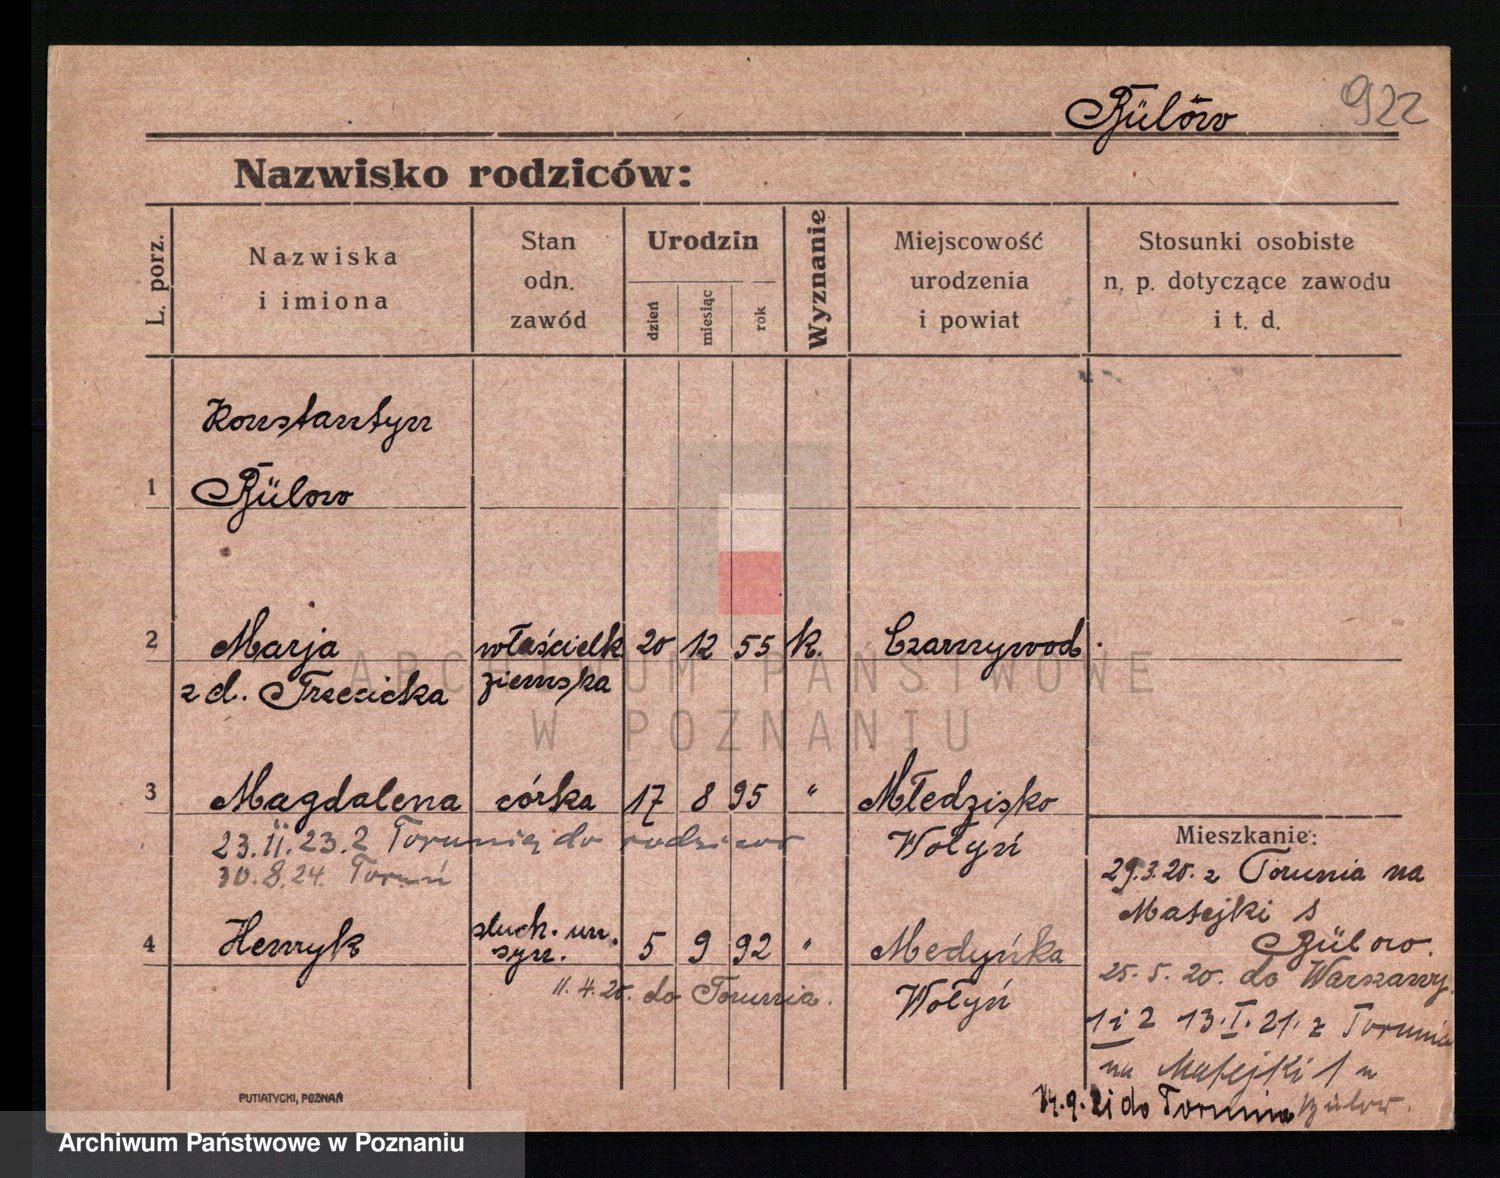 Bülow
922
Nazwisko rodziców:
L. porz.
Nazwiska
i imiona
Stan
odn.
zawód
Urodzin
dzień
miesiąc
rok
Wyznanie
Miejscowość
urodzenia
i powiat
Stosunki osobiste
n. p. dotyczące zawodu
i t. d.
Konstantyn
1 Bülow
2 Marja właścielk 20 12 55 k. Czarnywod
z d. Trzecicka ziemska
3 Magdalena córka 17 8 95 " Młedzisko
Wołyń
23.II.23. z Torunia do rodziców
30.8.24. Toruń
4 Henryk słuch. un. 5 9 92 " Medyńka
syn.
Wołyń
11.4.20. do Torunia.
Mieszkanie:
29.3.20. z Torunia na
Matejki
Bülow.
25.5.20. do Warszawy.
1 i 2 13.I.21. z Torunia
na Matejki 1 u
Bülow.
14.9.21 do Torunia
PUTIATYCKI, POZNAŃ
ARCHIWUM PAŃSTWOWE
W POZNANIU
Archiwum Państwowe w Poznaniu